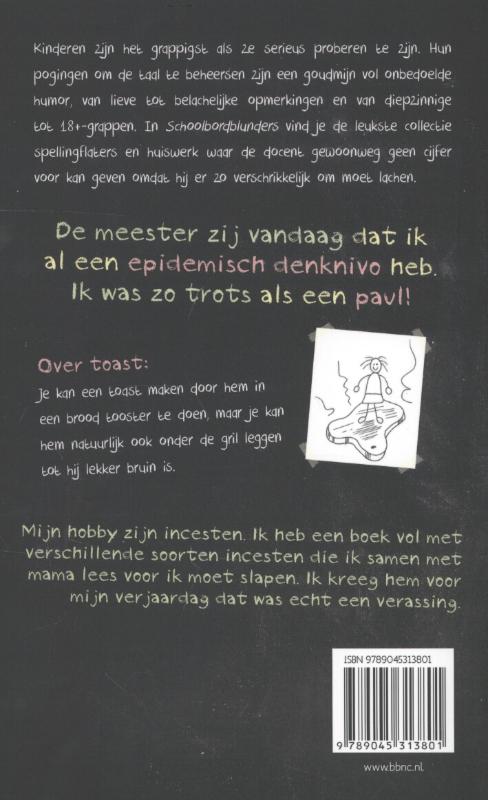 Kinderen zijn het grappigst als ze serieus proberen te zijn. Hun
pogingen om de taal te beheersen zijn een goudmijn vol onbedoelde
humor, van lieve tot belachelijke opmerkingen en van diepzinnige
tot 18+-grappen. In Schoolbordblunders vind je de leukste collectie
spellingflaters en huiswerk waar de docent gewoonweg geen cijfer
voor kan geven omdat hij er zo verschrikkelijk om moet lachen.
De meester zij vandaag dat ik
al een epidemisch denknivo heb.
Ik was zo trots als een paul!
Over toast:
Je kan een toast maken door hem in
een brood tooster te doen, maar je kan
hem natuurlijk ook onder de gril leggen
tot hij lekker bruin is.
Mijn hobby zijn incesten. Ik heb een boek vol met
verschillende soorten incesten die ik samen met
mama lees voor ik moet slapen. Ik kreeg hem voor
mijn verjaardag dat was echt een verassing.
ISBN 9789045313801
9 789045 313801
www.bbnc.nl